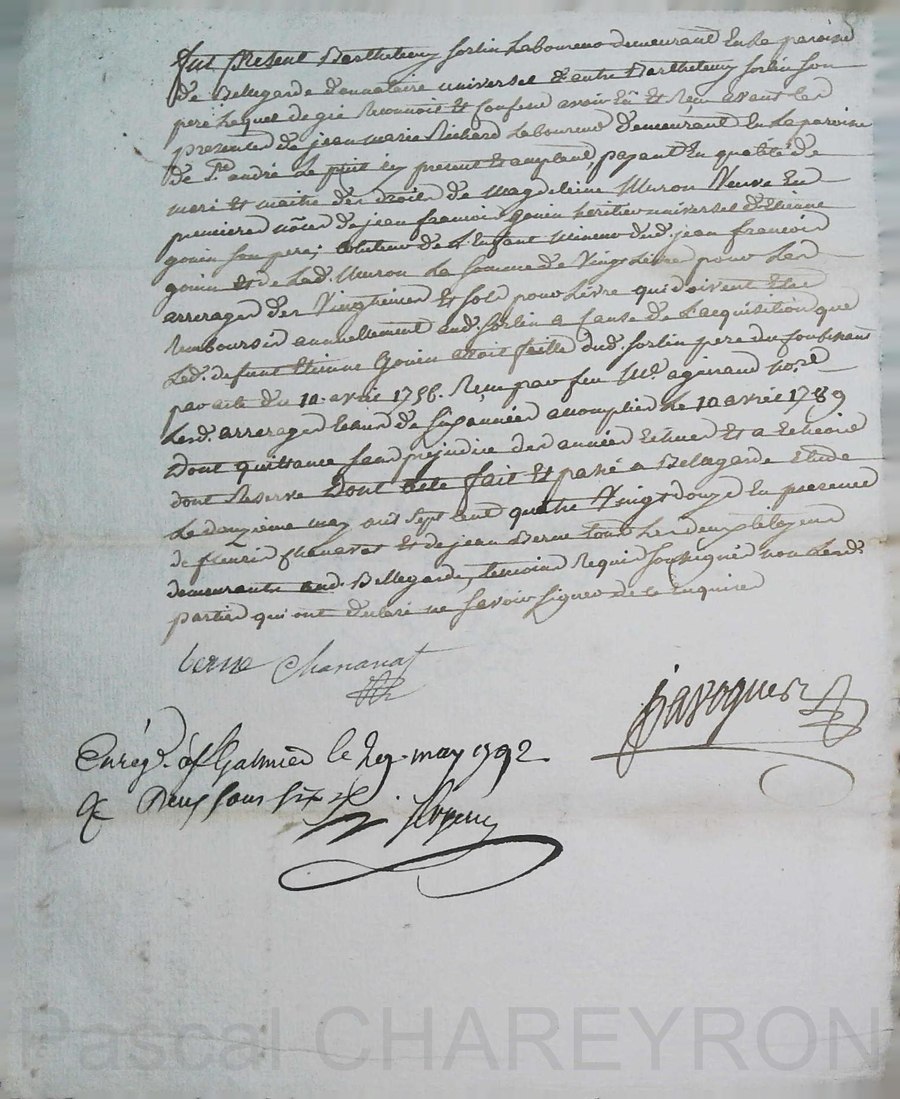 fut present Barthelemy sorlin Laboureur demeurant En la paroisse
de Bellegarde donnataire universel d'autre Barthelemy sorlin son
pere Lequel de gré Reconnoit Et Confesse avoir Eû Et Reçu avant Les
presentes de jean marie Richard Laboureur demeurant En La paroisse
de St. andré Le puit icy present Et acceptant, payant En qualité de
mari Et maitre des droits de Magdeleine Muron Veuve En
premieres nôces de jean francois gouin heritier universel d'Etienne
gouin son pere, tuteur de L'Enfant Mineur dud. jean francois
gouin Et de Lad. Muron La somme de Vingt Livre pour Les
arrerages des Vingtiemes Et sols pour Livre qui doivent Etre
Remboursés annuellement aud. sorlin a Cause de L'acquisition que
Led. defunt Etienne Gouin avoit faitte dud. sorlin pere du
par acte du 10. avril 1756. Reçu par feu Me. aguiraud No.re
Lesd. arrerages de six années accomplies Le 10 avril 1789
Dont quittance sans prejudice des années Echues Et a Echeoir
dont Reserve Dont Acte fait Et passé a Bellegarde Etude
Le douzieme may mil sept Cent quatre Vingt douze En presence
de fleuris Chavanat Et de jean Berne tous Les deux Citoyens
demeurants aud. Bellegarde, temoins Requis soussignés non Lesd.
parties qui ont declaré ne savoir signer de ce Enquises
berne Chavanat
javogues
Enrég. à St Galmier le 29. may 1792.
R. Deux sous six